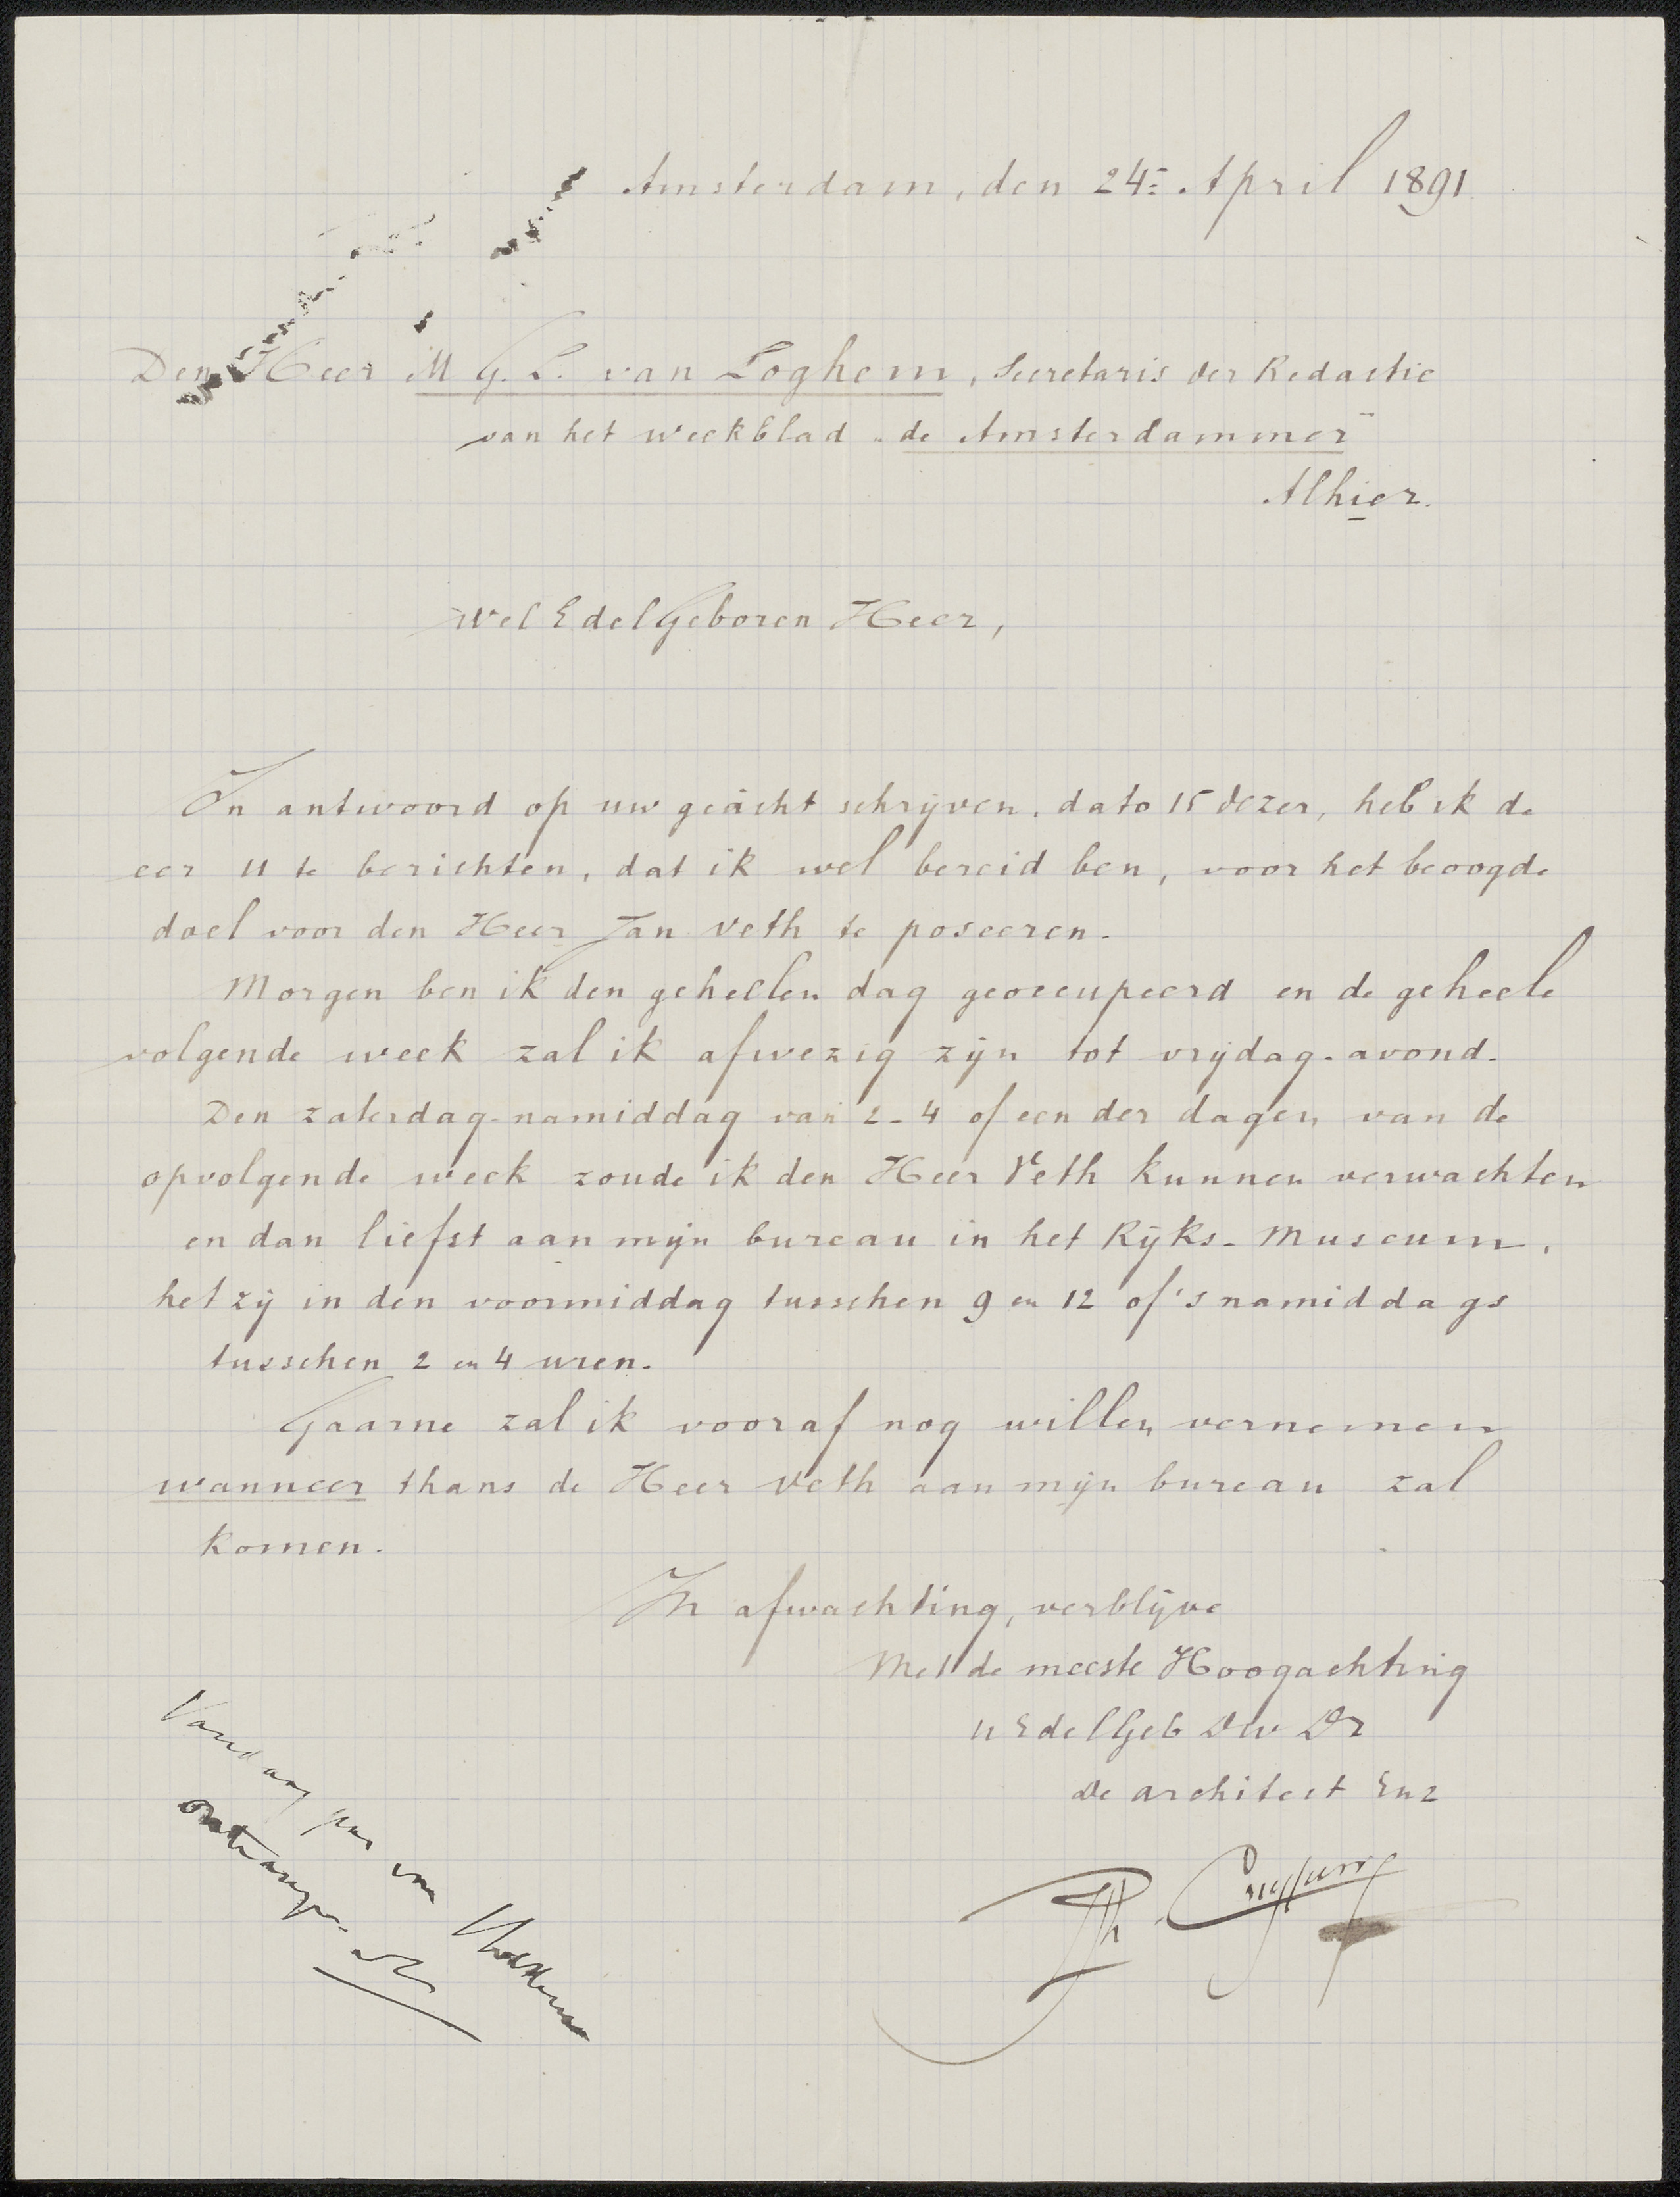 Amsterdam, den 24= April 1891
Den Heer M G. L. van Loghem, Secretaris der Redactie
van het weekblad „de Amsterdammer"
Alhier.
Wel Edel Geboren Heer,
In antwoord op uw geacht schrijven, dato 15 dezer, heb ik de
eer U te berichten, dat ik wel bereid ben, voor het beoogde
doel voor den Heer Jan Veth te poseeren.
Morgen ben ik den geheelen dag geoccupeerd en de geheele
volgende week zal ik afwezig zijn tot vrijdag-avond.
Den zaterdag-namiddag van 2-4 of een der dagen van de
opvolgende week zoude ik den Heer Veth kunnen verwachten
en dan liefst aan mijn bureau in het Rijks-Museum,
het zij in den voormiddag tusschen 9 en 12 of 's namiddags
tusschen 2 en 4 uren.
Gaarne zal ik vooraf nog willen vernemen
wanneer thans de Heer Veth aan mijn bureau zal
komen.
In afwachting, verblijve
Met de meeste Hoogachting
U EdelGeb Dw Dr
de architect Enz
Vandaag pas van
ontvangen